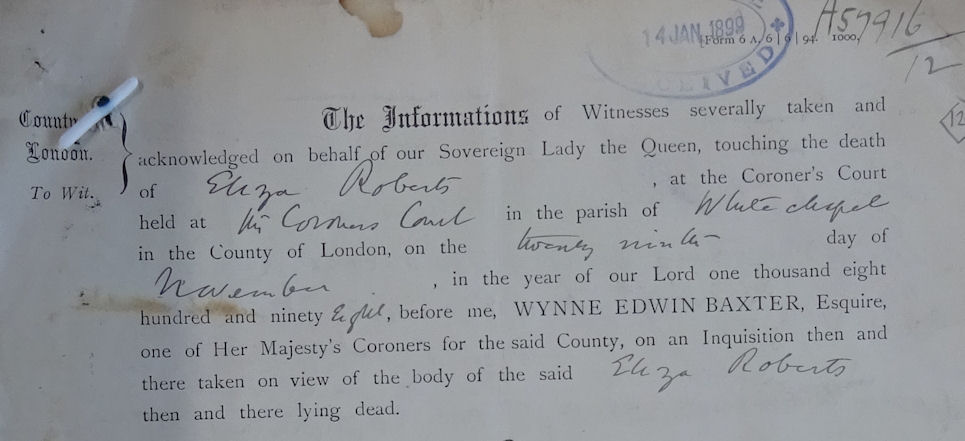 14 JAN. 1899
RECEIVED
Form 6 A/6|9|94. 1000,
A57916
12
12
County
London.
To Wit.
The Informations of Witnesses severally taken and
acknowledged on behalf of our Sovereign Lady the Queen, touching the death
of Eliza Roberts, at the Coroner's Court
held at the Coroners Court in the parish of Whitechapel
in the County of London, on the twenty ninth day of
November, in the year of our Lord one thousand eight
hundred and ninety Eight, before me, WYNNE EDWIN BAXTER, Esquire,
one of Her Majesty's Coroners for the said County, on an Inquisition then and
there taken on view of the body of the said Eliza Roberts
then and there lying dead.